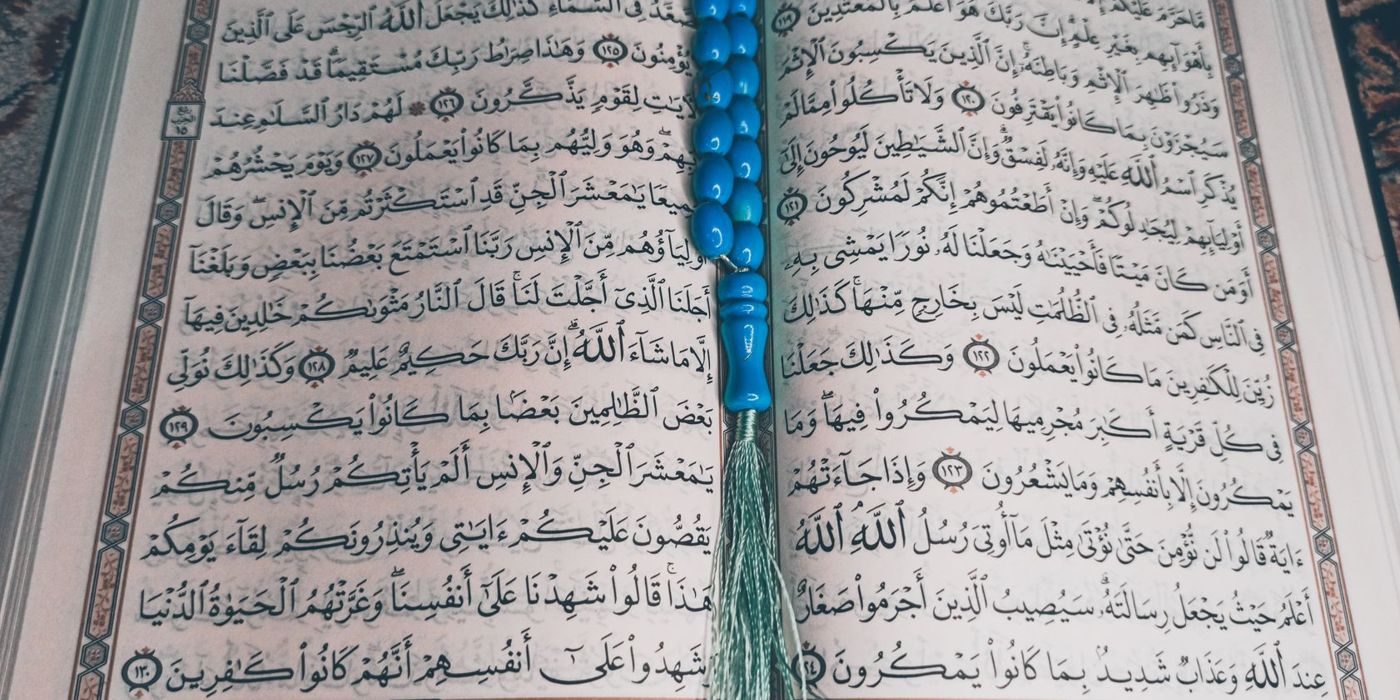 مَّا حَرَّمَ عَلَيْكُمْ
بِأَهْوَآئِهِم بِغَيْرِ عِلْمٍ إِنَّ رَبَّكَ هُوَ أَعْلَمُ بِٱلْمُعْتَدِينَ ١١٩
وَذَرُواْ ظَٰهِرَ ٱلْإِثْمِ وَبَاطِنَهُۥٓ إِنَّ ٱلَّذِينَ يَكْسِبُونَ ٱلْإِثْمَ
سَيُجْزَوْنَ بِمَا كَانُواْ يَقْتَرِفُونَ ١٢٠ وَلَا تَأْكُلُواْ مِمَّا لَمْ
يُذْكَرِ ٱسْمُ ٱللَّهِ عَلَيْهِ وَإِنَّهُۥ لَفِسْقٌ وَإِنَّ ٱلشَّيَٰطِينَ لَيُوحُونَ إِلَىٰٓ
أَوْلِيَآئِهِمْ لِيُجَٰدِلُوكُمْ وَإِنْ أَطَعْتُمُوهُمْ إِنَّكُمْ لَمُشْرِكُونَ ١٢١
أَوَمَن كَانَ مَيْتًا فَأَحْيَيْنَٰهُ وَجَعَلْنَا لَهُۥ نُورًا يَمْشِى بِهِۦ
فِى ٱلنَّاسِ كَمَن مَّثَلُهُۥ فِى ٱلظُّلُمَٰتِ لَيْسَ بِخَارِجٍ مِّنْهَا كَذَٰلِكَ
زُيِّنَ لِلْكَٰفِرِينَ مَا كَانُواْ يَعْمَلُونَ ١٢٢ وَكَذَٰلِكَ جَعَلْنَا
فِى كُلِّ قَرْيَةٍ أَكَٰبِرَ مُجْرِمِيهَا لِيَمْكُرُواْ فِيهَا وَمَا
يَمْكُرُونَ إِلَّا بِأَنفُسِهِمْ وَمَا يَشْعُرُونَ ١٢٣ وَإِذَا جَآءَتْهُمْ
ءَايَةٌ قَالُواْ لَن نُّؤْمِنَ حَتَّىٰ نُؤْتَىٰ مِثْلَ مَآ أُوتِىَ رُسُلُ ٱللَّهِ ٱللَّهُ
أَعْلَمُ حَيْثُ يَجْعَلُ رِسَالَتَهُۥ سَيُصِيبُ ٱلَّذِينَ أَجْرَمُواْ صَغَارٌ
عِندَ ٱللَّهِ وَعَذَابٌ شَدِيدٌۢ بِمَا كَانُواْ يَمْكُرُونَ ١٢٤
يَصَّعَّدُ فِى ٱلسَّمَآءِ كَذَٰلِكَ يَجْعَلُ ٱللَّهُ ٱلرِّجْسَ عَلَى ٱلَّذِينَ
يُؤْمِنُونَ ١٢٥ وَهَٰذَا صِرَٰطُ رَبِّكَ مُسْتَقِيمًا قَدْ فَصَّلْنَا
ٱلْءَايَٰتِ لِقَوْمٍ يَذَّكَّرُونَ ١٢٦ لَهُمْ دَارُ ٱلسَّلَٰمِ عِندَ
رَبِّهِمْ وَهُوَ وَلِيُّهُم بِمَا كَانُواْ يَعْمَلُونَ ١٢٧ وَيَوْمَ يَحْشُرُهُمْ
جَمِيعًا يَٰمَعْشَرَ ٱلْجِنِّ قَدِ ٱسْتَكْثَرْتُم مِّنَ ٱلْإِنسِ وَقَالَ
أَوْلِيَآؤُهُم مِّنَ ٱلْإِنسِ رَبَّنَا ٱسْتَمْتَعَ بَعْضُنَا بِبَعْضٍ وَبَلَغْنَآ
أَجَلَنَا ٱلَّذِىٓ أَجَّلْتَ لَنَا قَالَ ٱلنَّارُ مَثْوَىٰكُمْ خَٰلِدِينَ فِيهَآ
إِلَّا مَا شَآءَ ٱللَّهُ إِنَّ رَبَّكَ حَكِيمٌ عَلِيمٌ ١٢٨ وَكَذَٰلِكَ نُوَلِّى
بَعْضَ ٱلظَّٰلِمِينَ بَعْضًۢا بِمَا كَانُواْ يَكْسِبُونَ ١٢٩
يَٰمَعْشَرَ ٱلْجِنِّ وَٱلْإِنسِ أَلَمْ يَأْتِكُمْ رُسُلٌ مِّنكُمْ
يَقُصُّونَ عَلَيْكُمْ ءَايَٰتِى وَيُنذِرُونَكُمْ لِقَآءَ يَوْمِكُمْ
هَٰذَا قَالُواْ شَهِدْنَا عَلَىٰٓ أَنفُسِنَا وَغَرَّتْهُمُ ٱلْحَيَوٰةُ ٱلدُّنْيَا
وَشَهِدُواْ عَلَىٰٓ أَنفُسِهِمْ أَنَّهُمْ كَانُواْ كَٰفِرِينَ ١٣٠